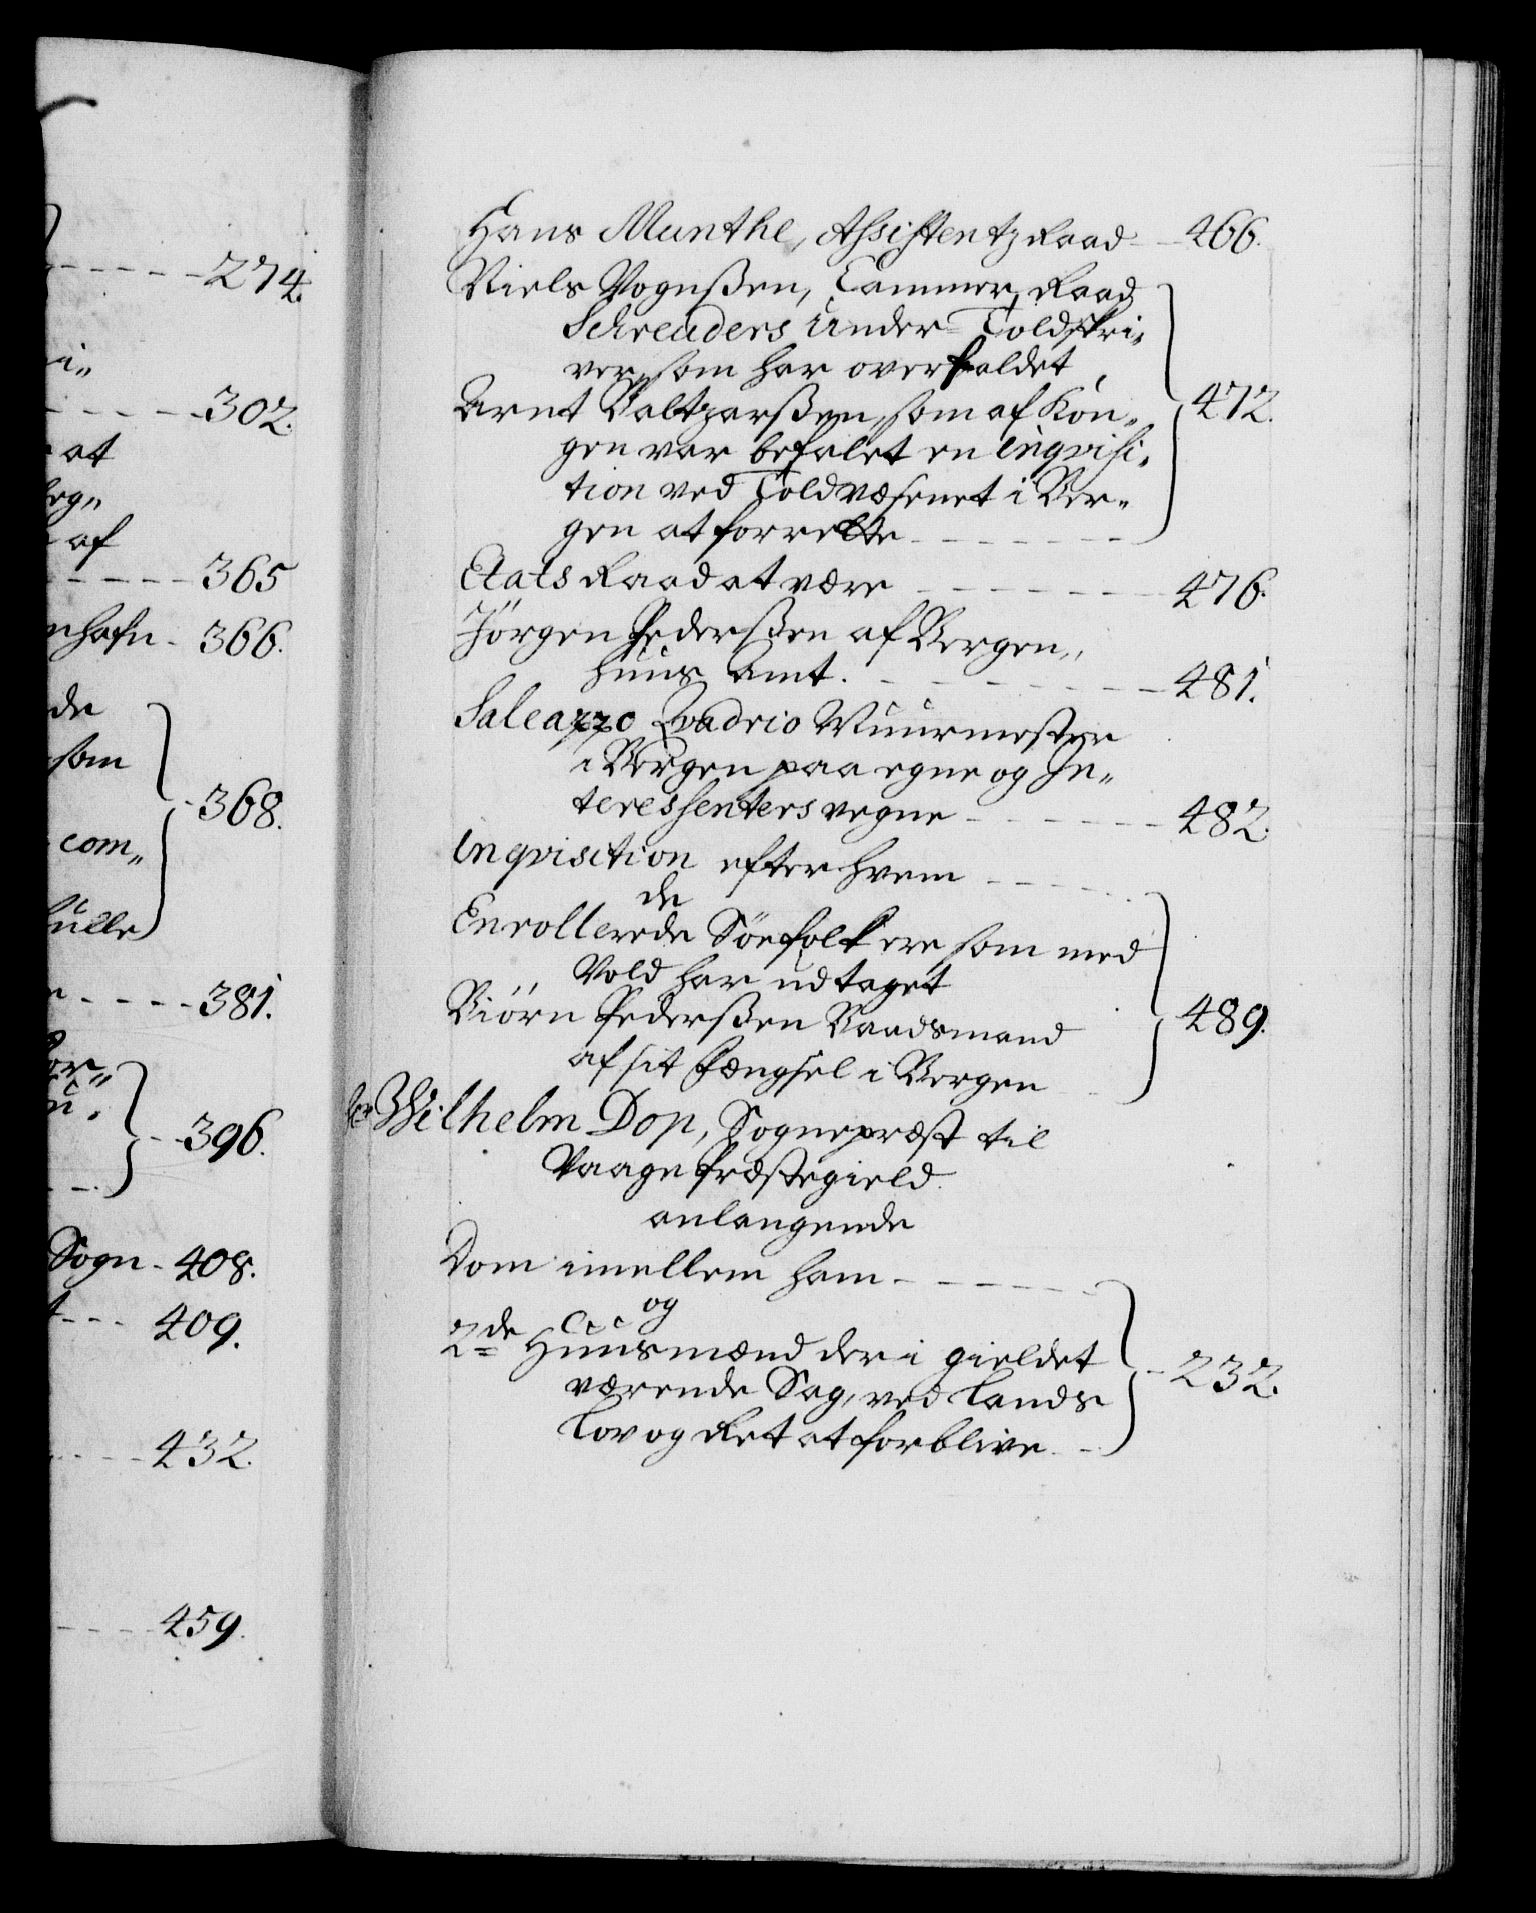 274.
i„
302.
at
af
365
nhafn - 366.
de
som
368.
com„
fulle
381.
396.
Sogn - 408.
409.
432.
459.
Hans Munthe, Assistentz Raad - 466.
Niels Vognsßen, Cammer Raad
Schreuders Under-Toldskri„
ver, som har overfaldet
Arnt Baltzarsßen, som af Kon„
gen var befalet en inqvisi„
tion ved Toldvæsenet i Ber„
gen at forrette - 472.
Etats Raad at være - 476.
Jørgen Pedersßen af Bergen„
huus Amt. - 481.
Saleazzo Qvadrio Muurmester
i Bergen paa egne og In„
teressenters vegne - 482.
Inqvisition efter hvem
de
Enrollerede Søefolk ere som med
Vold har udtaget
Biørn Pedersßen Baadsmand
af sit Fængsel i Bergen - 489.
Hr Wilhelm Dop, Sognepræst til
Vaage Præstegield
anlangende
Dom imellem ham
og
2de Huusmænd der i gieldet
værende Sag, ved Lands
Lov og Ret at forblive - 232.